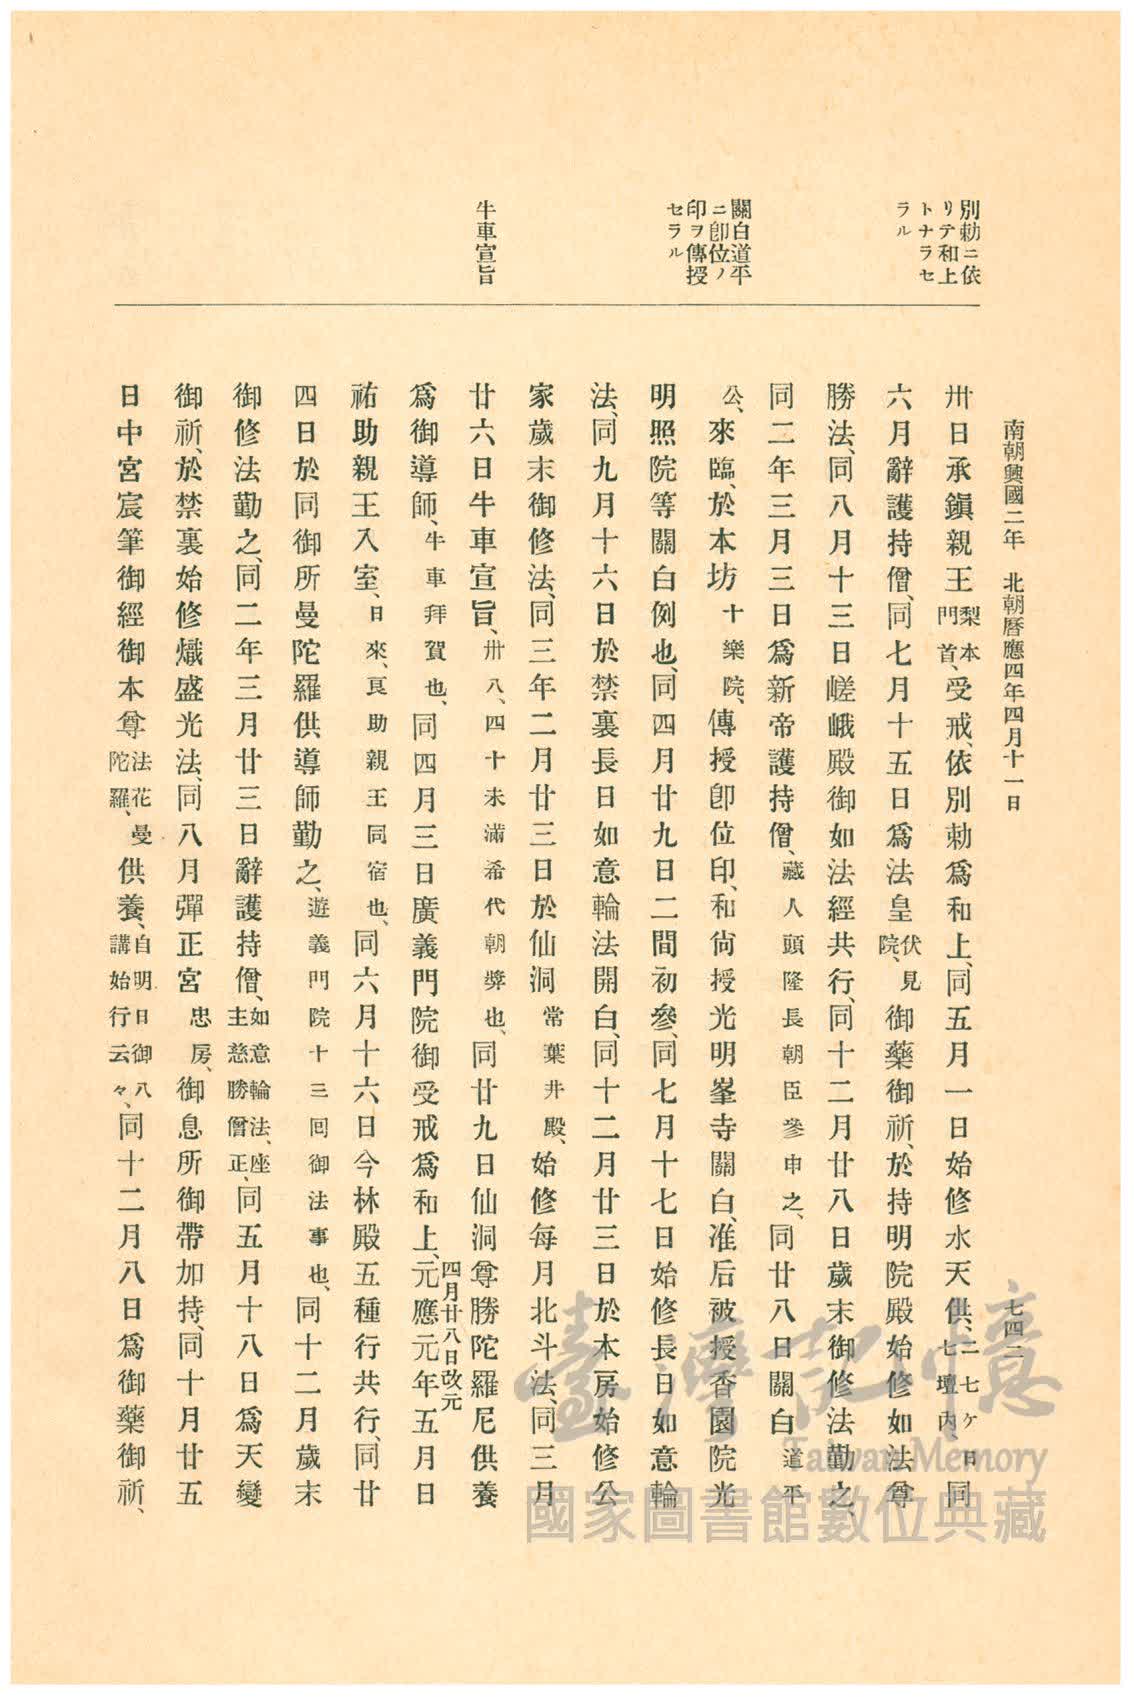 南朝興國二年　北朝曆應四年四月十一日
七四二
別勅ニ依
リテ和上
トナラセ
ラル
關白道平
ニ卽位ノ
印ヲ傳授
セラル
牛車宣旨
卅日承鎭親王梨本門首、受戒、依別勅爲和上、同五月一日始修水天供、二七ケ日七壇內、同
六月辭護持僧、同七月十五日爲法皇伏見院、御藥御祈、於持明院殿始修如法尊
勝法、同八月十三日嵯峨殿御如法經共行、同十二月廿八日歲末御修法勤之、
同二年三月三日爲新帝護持僧、藏人頭隆長朝臣參申之、同廿八日關白道平
公、來臨、於本坊十樂院、傳授卽位印、和尙授光明峯寺關白、准后被授香園院光
明照院等關白例也、同四月廿九日二間初參、同七月十七日始修長日如意輪
法、同九月十六日於禁裏長日如意輪法開白、同十二月廿三日於本房始修公
家歲末御修法、同三年二月廿三日於仙洞常葉井殿、始修每月北斗法、同三月
廿六日牛車宣旨、卅八、四十未滿希代朝獎也、同廿九日仙洞尊勝陀羅尼供養
爲御導師、牛車拜賀也、同四月三日廣義門院御受戒爲和上、元應元年四月廿八日改元五月日
祐助親王入室、日來、良助親王同宿也、同六月十六日今林殿五種行共行、同廿
四日於同御所曼陀羅供導師勤之、遊義門院十三回御法事也、同十二月歲末
御修法勤之、同二年三月廿三日辭護持僧、如意輪法、座主慈勝僧正、同五月十八日爲天變
御祈、於禁裏始修熾盛光法、同八月彈正宮忠房、御息所御帶加持、同十月廿五
日中宮宸筆御經御本尊法花曼陀羅、供養、自明日御八講始行云々、同十二月八日爲御藥御祈、
臺灣記憶
Taiwan Memory
國家圖書館數位典藏